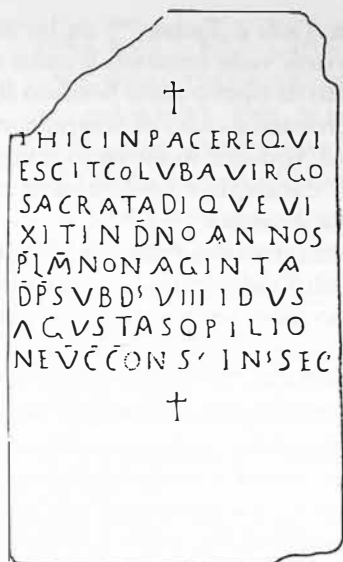 †
† HIC IN PACE REQVI
ESCIT COLVBA VIRGO
SACRATA DI QVE VI
XIT IN D̄NO ANNOS
P̄L M̄ NONAGINTA
D̄P̄ SVB Dˢ VIIII IDVS
AGVSTAS OPILIO
NE V̄C̄ C̄ONS′ INˢ SEC
†